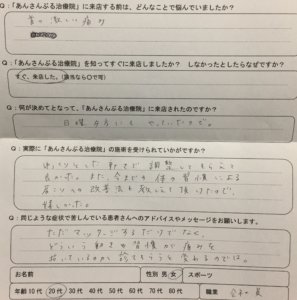 Q:「あんさんぷる治療院」に来店する前は、どんなことで悩んでいましたか?
首の激しい痛み
Q:「あんさんぷる治療院」を知ってすぐに来店しましたか? しなかったとしたらなぜですか?
すぐ、来店した。(該当なら○で可)
Q:何が決めてとなって、「あんさんぷる治療院」に来店されたのですか?
日曜
やっていたので。
Q:実際に「あんさんぷる治療院」の施術を受けられていかがですか?
調整してもらえて
良かった。また、今までの体の習慣による
の改善法も教えて頂けたので、
嬉しかった。
Q:同じような症状で苦しんでいる患者さんへのアドバイスやメッセージをお願いします。
ただマッサージするだけでなく、
どういう動きや習慣が痛みを
招いているのか
変わるのでは。
お名前 性別 男/女 スポーツ
年齢 10代 20代 30代 40代 50代 60代 70代 80代 職業 会社員